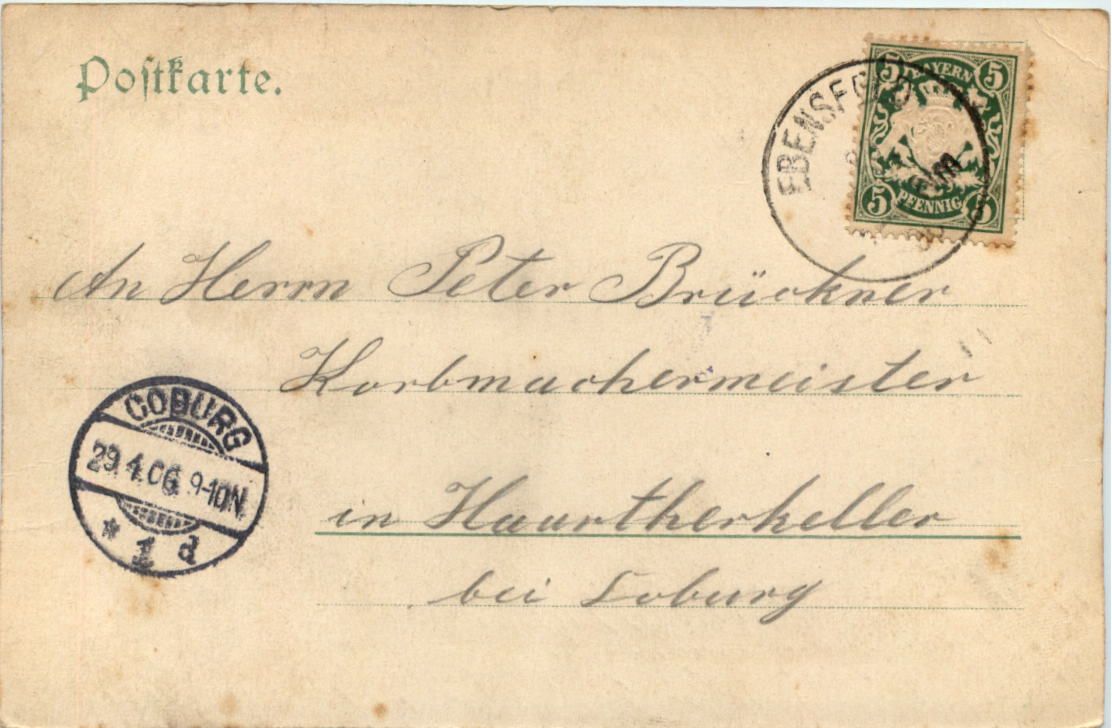 Postkarte.
5 BAYERN 5
5 PFENNIG 5
An Herrn Peter Brückner
Korbmachermeister
COBURG
29.4.06 9-10N.
* 1 d
in
bei Coburg